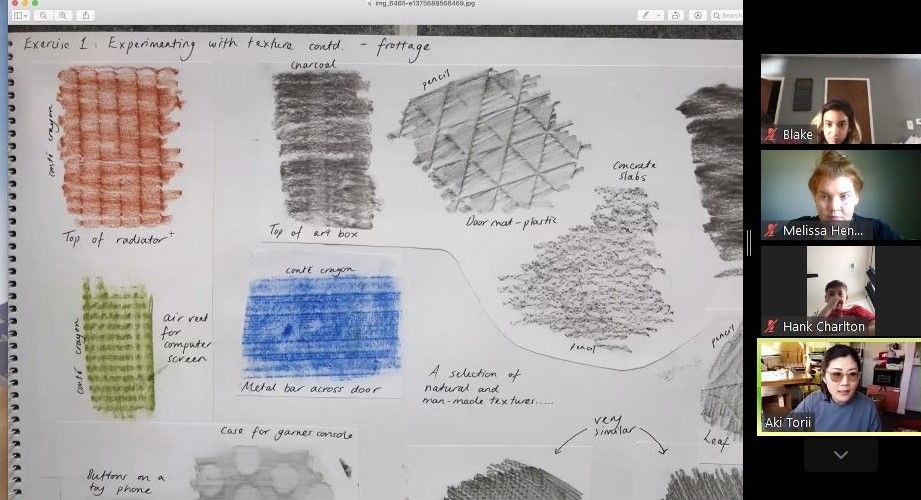 img_6465-e1375688568469.jpg
Search
Exercise 1: Experimenting with texture contd. - frottage
charcoal
pencil
conté crayon
concrete
slabs
Top of radiator
Top of art box
Door mat-plastic
conté crayon
air vent
for
computer
screen
conté crayon
pencil
pencil
Metal bar across door
A selection of
natural and
man-made textures.....
very
similar
Leaf
Case for games console
Buttons on a
toy phone
Blake
Melissa Hen...
Hank Charlton
Aki Torii